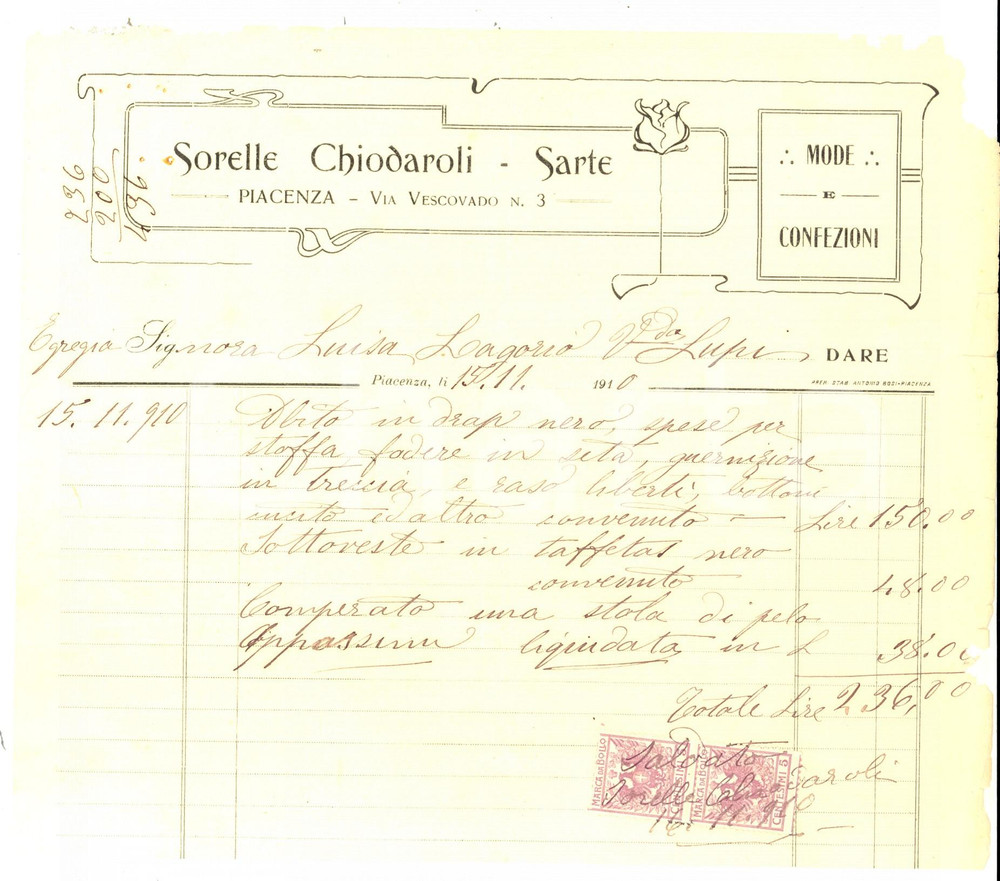 Sorelle Chiodaroli - Sarte
PIACENZA - VIA VESCOVADO N. 3
∴ MODE ∴
E
CONFEZIONI
236
200
436.
Egregia Signora Luisa Lagorio V.da Lupi DARE
Piacenza, li 15.11. 1910
PREM. STAB. ANTONIO BOSI-PIACENZA
15.11.910 Abito in drap nero, spese per
stoffa fodere in seta, guernizione
in treccia, e raso liberti, bottoni
ed altro convenuto - Lire 150.00
Sottoveste in taffetas nero
convenuto 48.00
Comperato una stola di pelo
liquidata in L 38.00
Totale Lire 236,00
MARCA DA BOLLO
MARCA DA BOLLO
CENTESIMI 5
Saldato
Sorelle Chiodaroli
16. 11. 910